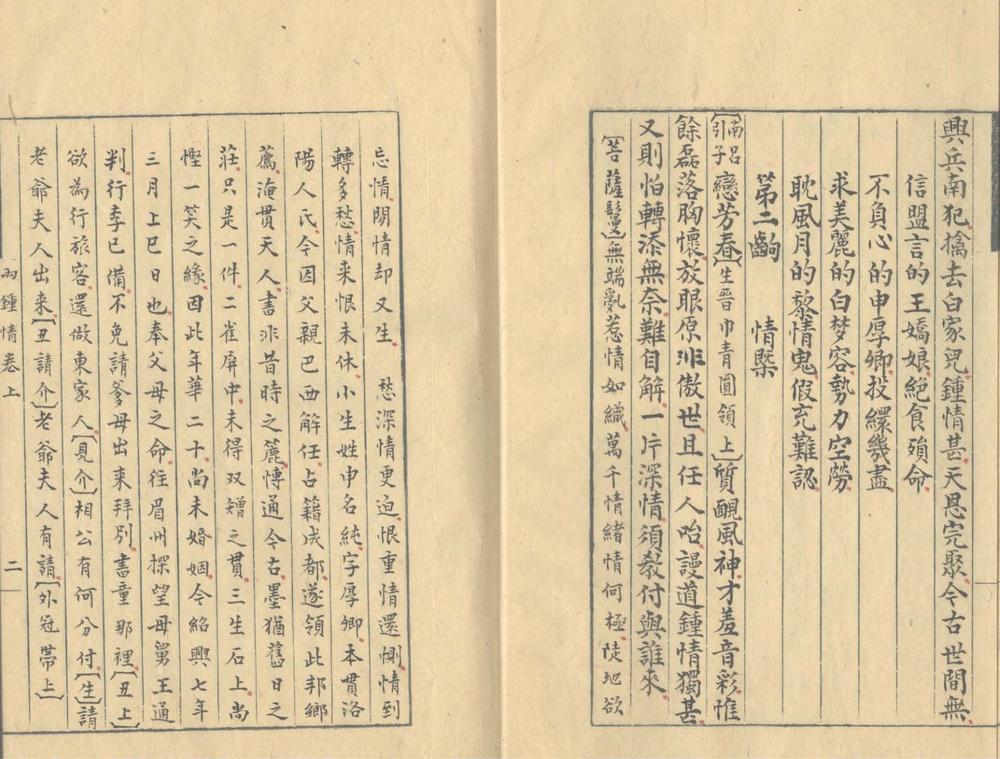 興兵南犯擒去白家兒鍾情甚天恩完聚今古世間無
信盟言的王嬌娘絕食殞命
不負心的申厚卿投繯幾盡
求美麗的白梦容勢力空勞
耽風月的黎情鬼假充難認
第二齣　情槩
〔南呂引子〕戀芳春〔生晋巾青圓領上〕質靦風神才羞音彩惟
餘磊落胸懷放眼原非傲世且任人咍謾道鍾情獨甚
又則怕轉添無奈難自解一片深情須教付與誰來
〔菩薩鬘〕無端亂惹情如織萬千情緒情何極陡地欲
忘情関情却又生　愁深情更迫恨重情還惻情到
轉多愁情来恨未休小生姓申名純字厚卿本貫洛
陽人氏今因父親巴西解任占籍成都遂領此邦鄉
薦淹貫天人書非昔時之簏愽通今古墨猶舊日之
莊只是一件二雀屏中未得双矰之貫三生石上尚
慳一笑之緣因此年華二十尚未婚姻今紹興七年
三月上巳日也奉父母之命往眉州探望母舅王通
判行李已備不免請爹母出来拜别書童那裡〔丑上〕
欲為行旅客還做東家人〔見介〕相公有何分付〔生〕請
老爺夫人出来〔丑請介〕老爺夫人有請〔外冠帶上〕
兩鍾情卷上
二